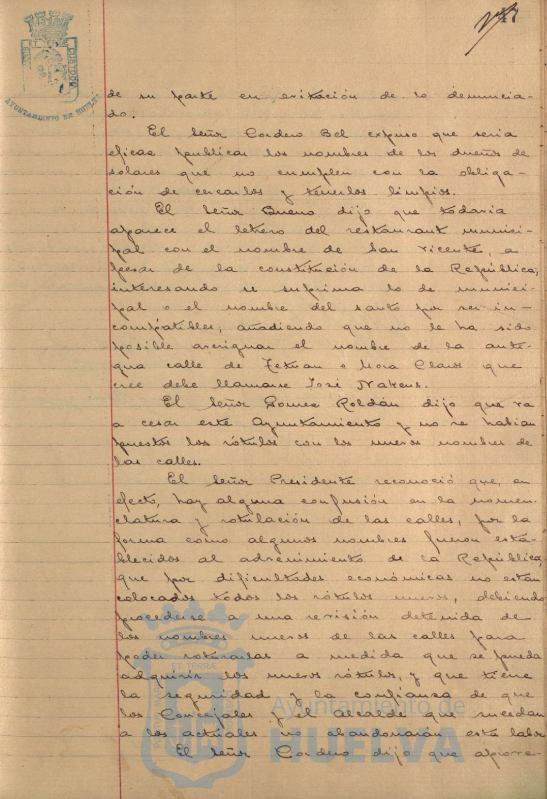 de su parte en evitación de lo denuncia-
do.
El Señor Cordero Bel expuso que seria
eficaz publicar los nombres de los dueños de
solares que no cumplen con la obliga-
ción de cercarlos y tenerlos limpios.
El Señor Bueno dijo que todavia
aparece el letrero del restaurant munici-
pal con el nombre de San Vicente, a
pesar de la constitución de la República,
interesando se suprima lo de munici-
pal o el nombre del santo por ser in-
compatibles, añadiendo que no le ha sido
posible averiguar el nombre de la anti-
gua calle de Tetuan o Mora Claros que
cree debe llamarse José Nakens.
El Señor Gomez Roldán dijo que va
a cesar este Ayuntamiento y no se habian
puestos los rótulos con los nuevos nombres de
las calles.
El Señor Presidente reconoció que, en
efecto, hay alguna confusión en la nomen-
clatura y rotulación de las calles, por la
forma como algunos nombres fueron esta-
blecidos al advenimiento de la República,
que por dificultades económicas no están
colocados todos los rótulos nuevos, debiendo
procederse a una revisión detenida de
los nombres nuevos de las calles para
poder rotularlas a medida que se pueda
adquirir los nuevos rótulos, y que tiene
la seguridad y la confianza de que
los Concejales y el Alcalde que sucedan
a los actuales no abandonarán esta labor
El Señor Cordero dijo que aprove-
AYUNTAMIENTO DE HUELVA
Ayuntamiento de
HUELVA